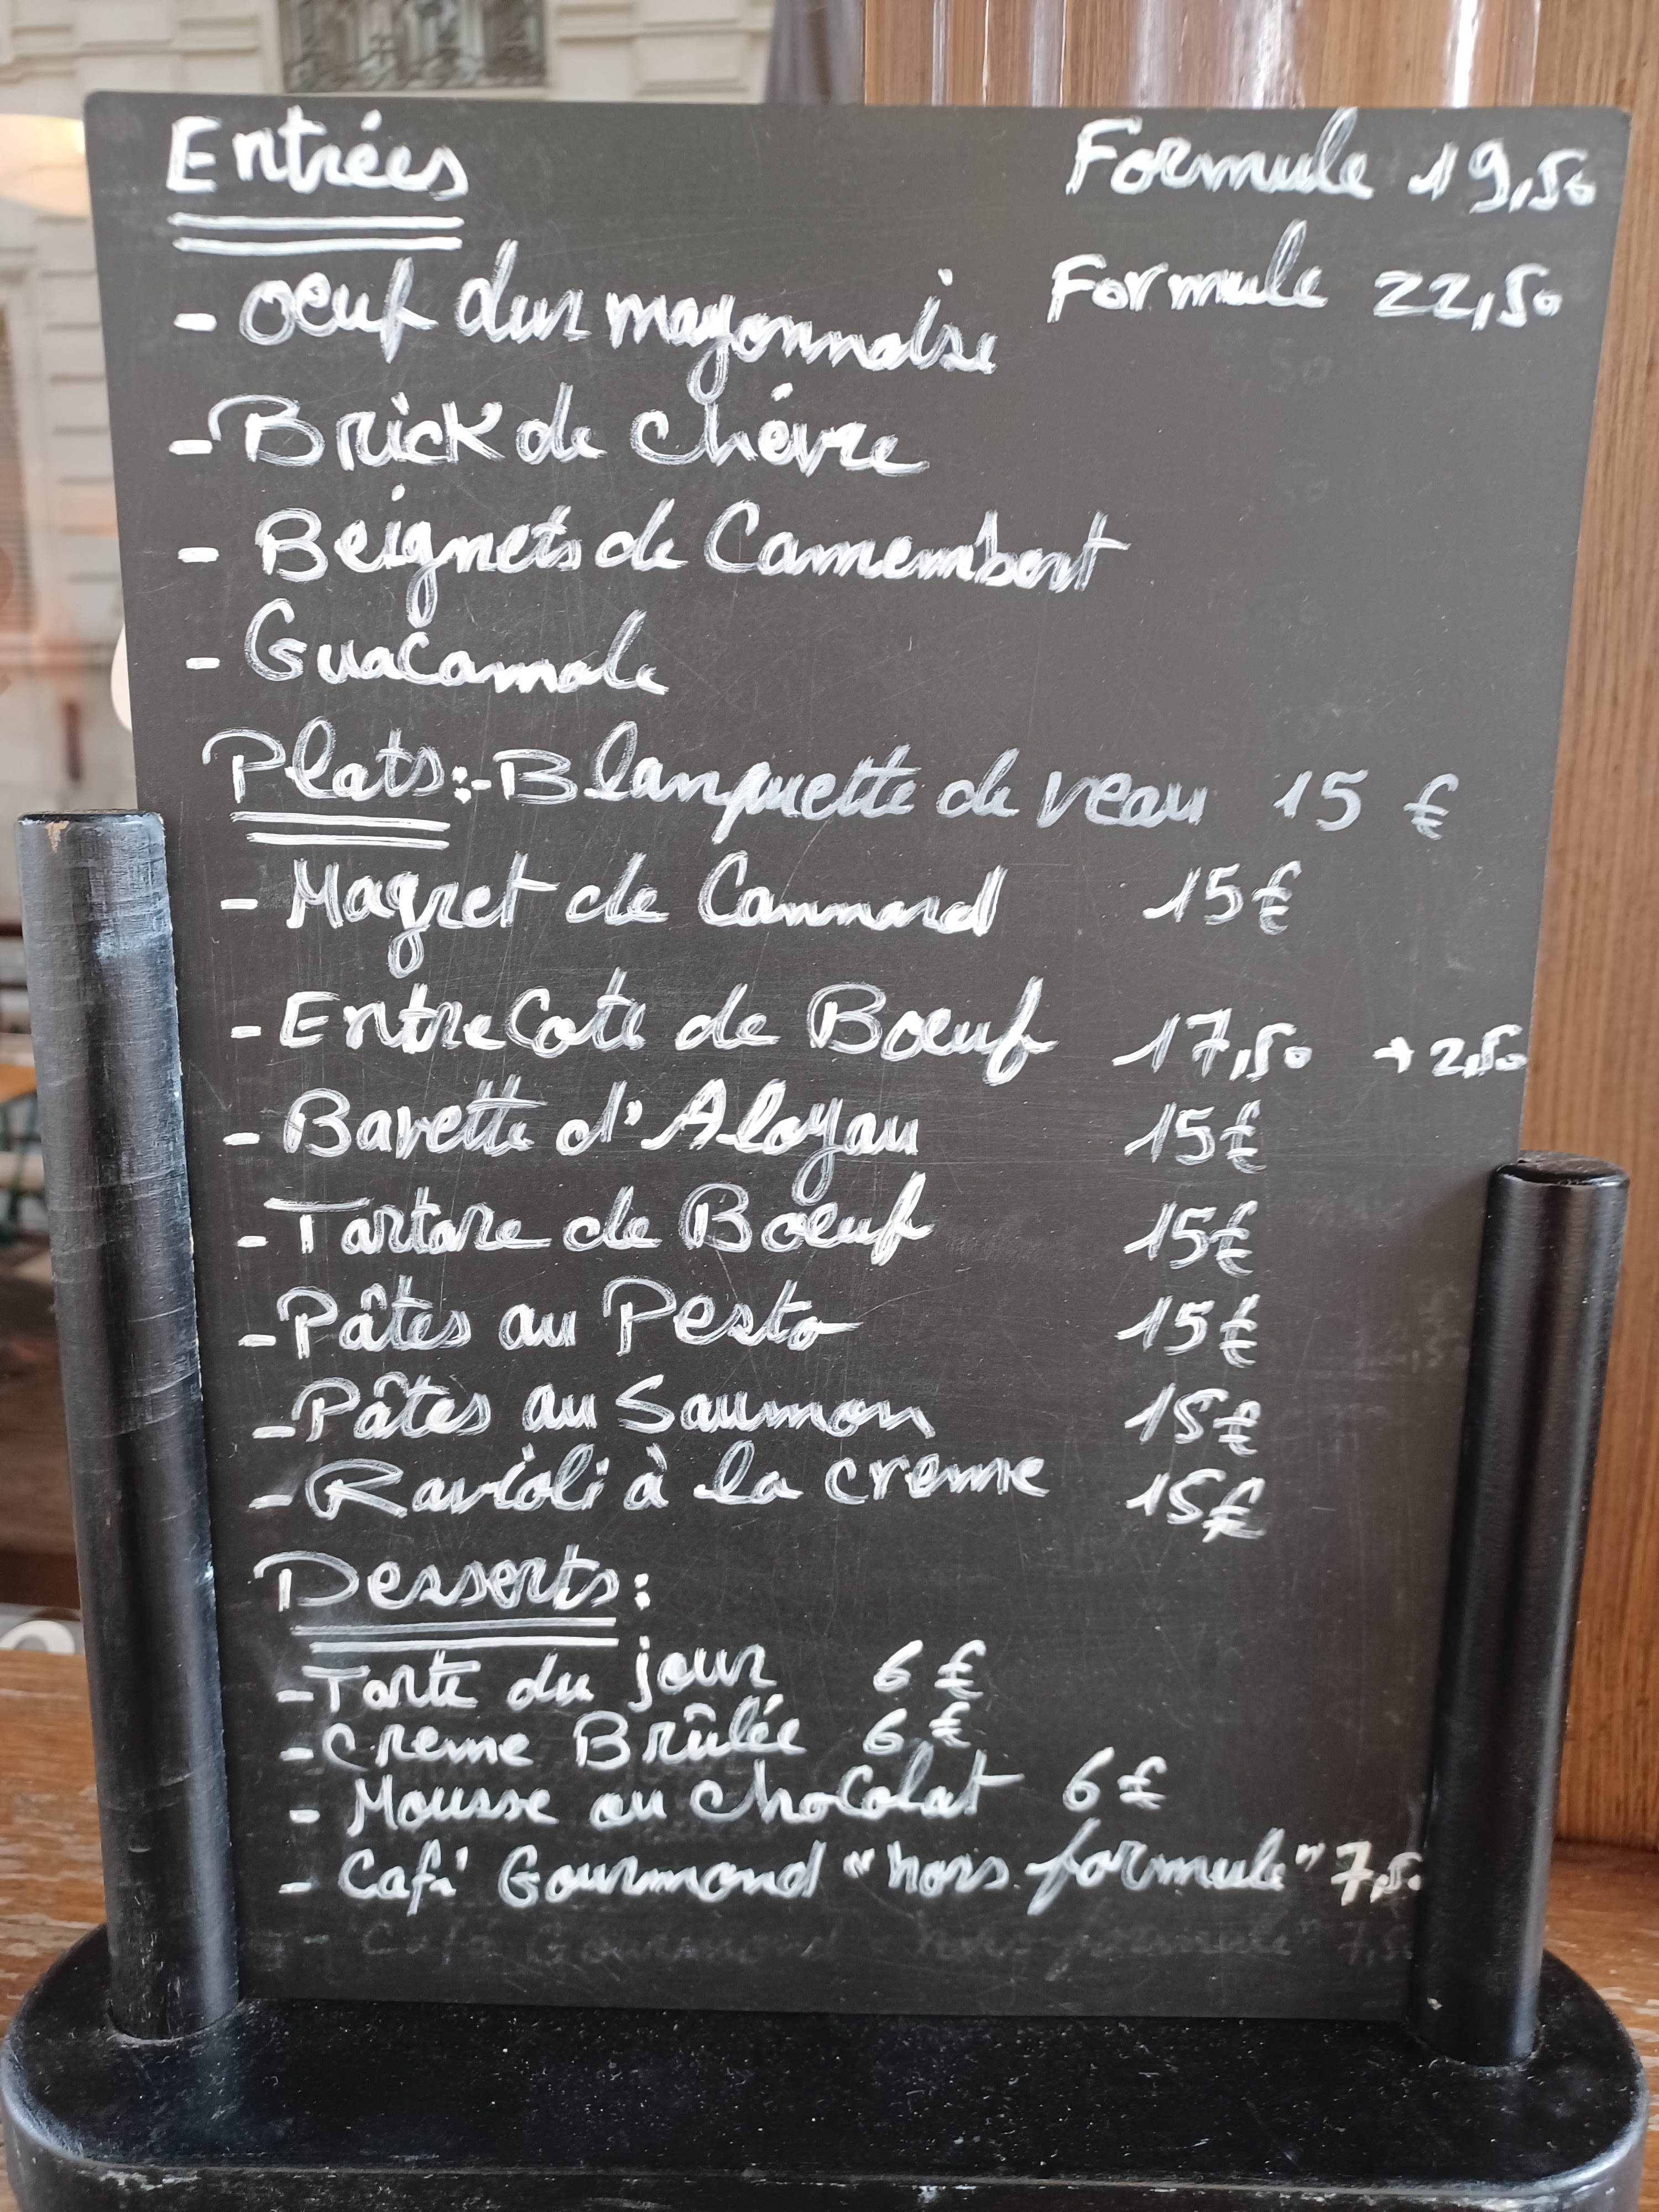 Entrées Formule 19,50
Formule 22,50
- Oeuf dur mayonnaise
- Brick de chèvre
- Beignets de Camembert
- Guacamole
Plats :- Blanquette de veau 15 €
- Magret de Cannard 15€
- EntreCote de Boeuf 17,50 +2,50
- Bavette d'Aloyau 15€
- Tartare de Boeuf 15€
- Pâtes au Pesto 15€
- Pâtes au Saumon 15€
- Ravioli à la creme 15€
Desserts :
- Tarte du jour 6 €
- Creme Brûlée 6 €
- Mousse au Chocolat 6€
- Café Gourmand "hors formule" 7,50